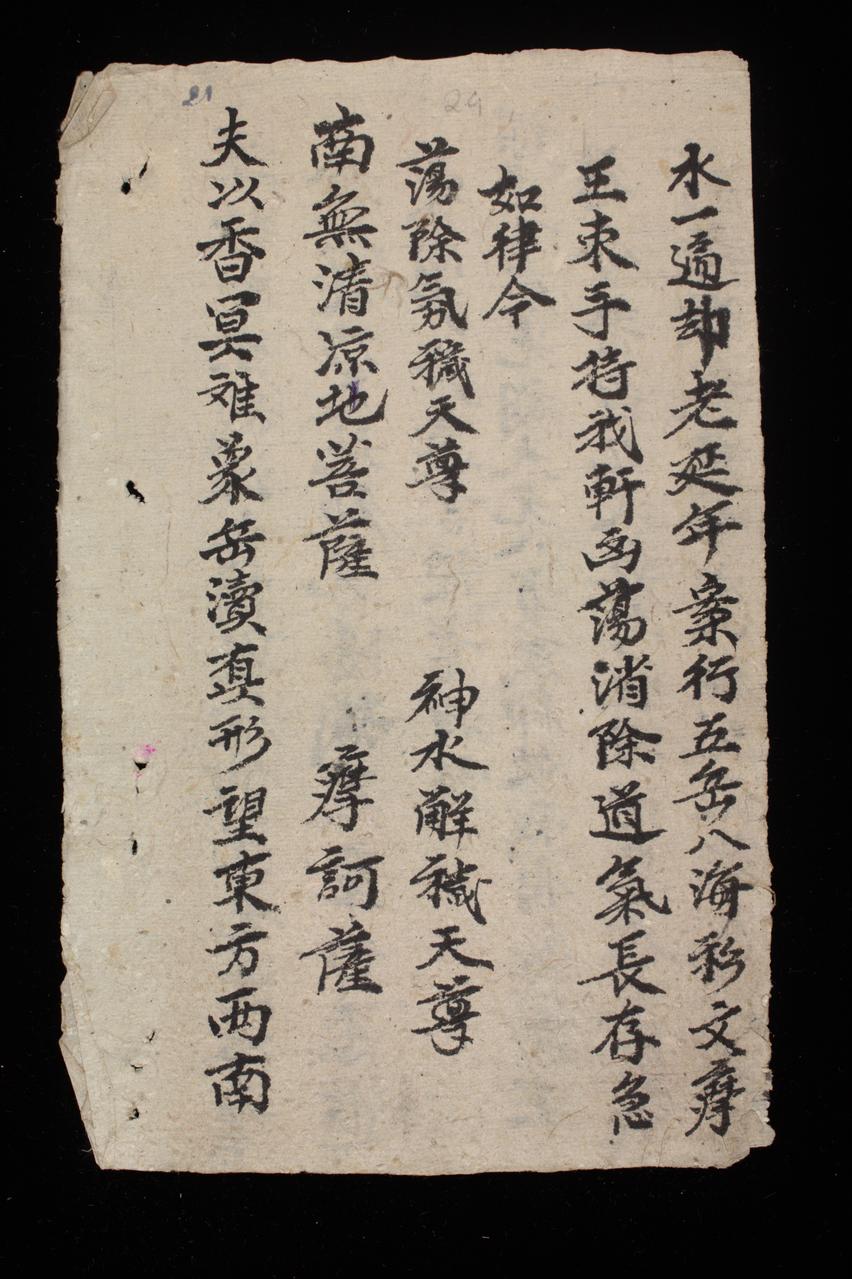 水一遍却老延年案行五岳八海彩文摩
王束手持我軒凶荡消除道氣長存急
如律令
荡除氛穢天尊 神水解穢天尊
南無清凉地菩薩 摩訶薩
夫以香冥难蒙岳瀆真形望東方西南
21
29